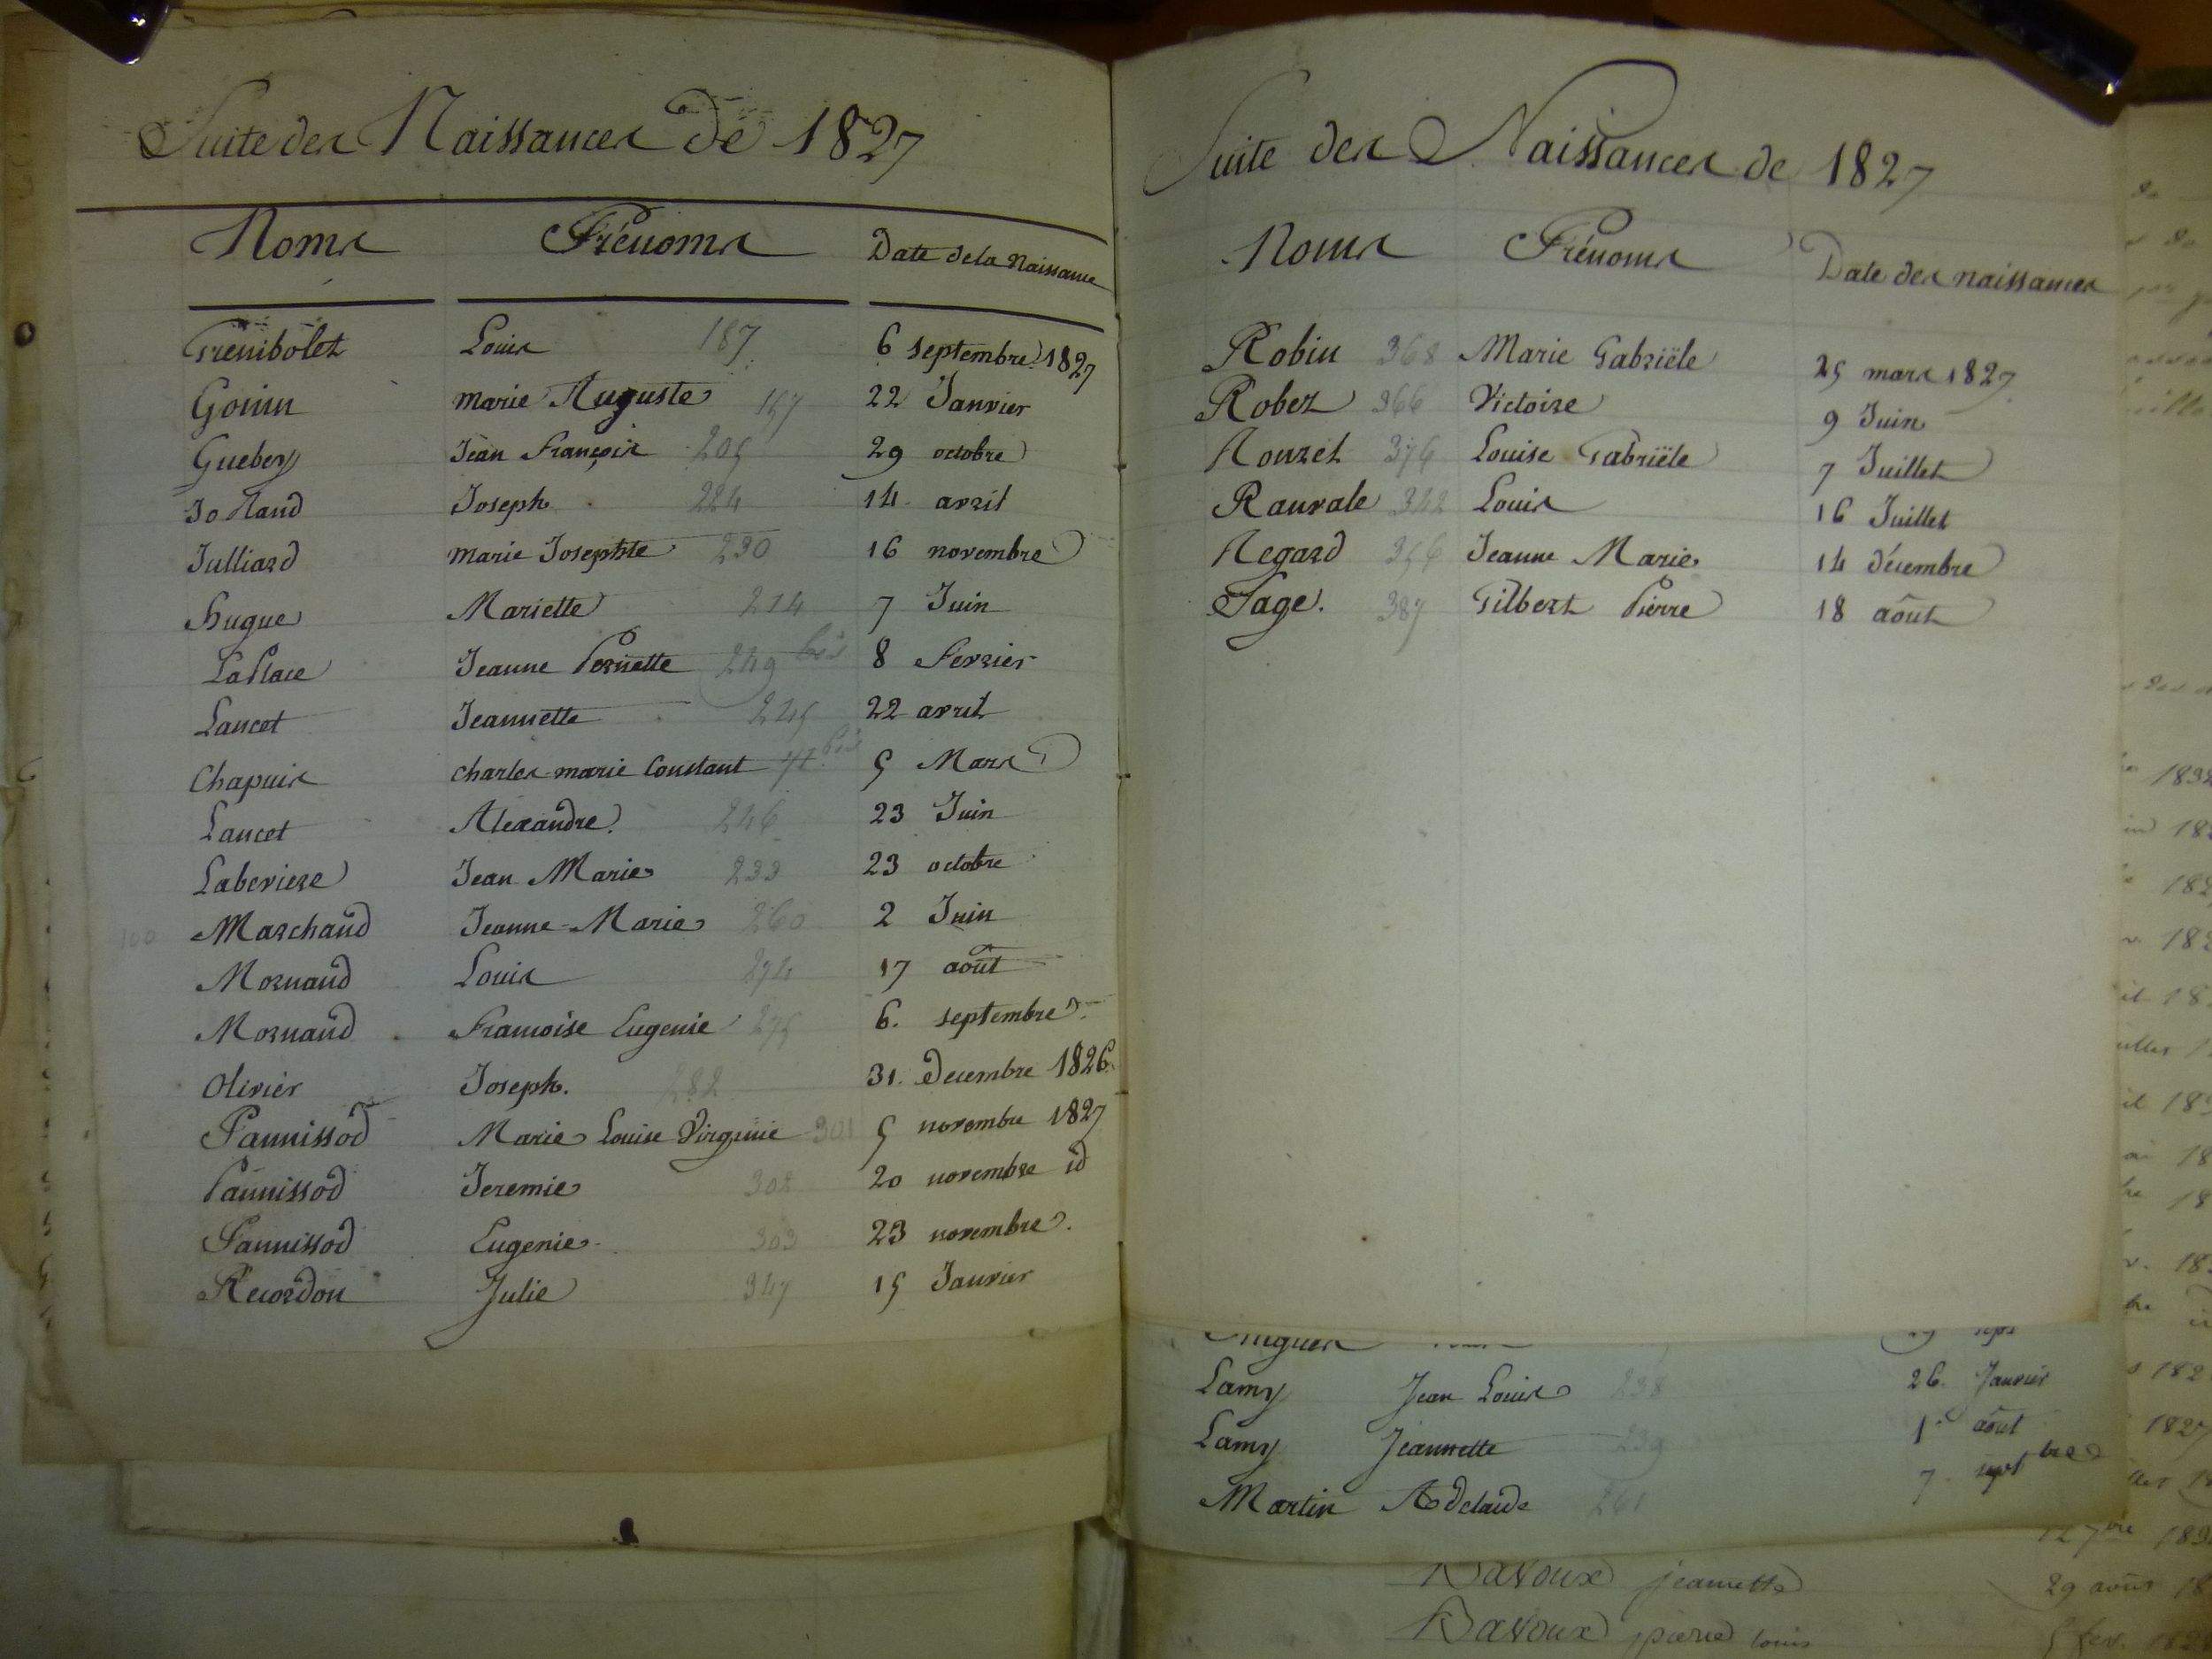 Suite des Naissances de 1827
Noms Prénoms Date de la Naissance
Grenibolet Louis 187 6 septembre 1827
Gouin marie Auguste 157 22 Janvier
Guebey Jean François 205 29 octobre
Jolland Joseph 224 14 avril
Julliard marie Josephte 230 16 novembre
hugue Mariette 214 7 Juin
LaPlace Jeanne Pernette 249 bis 8 Fevrier
Lancet Jeannette 245 22 avril
Chapuis charles marie Constant bis 5 Mars
Lancet Alexandre 246 23 Juin
Laberiere Jean Marie 233 23 octobre
100 Marchand Jeanne-Marie 260 2 Juin
Mornand Louis 274 17 août
Mornand Francoise Eugenie 275 6. septembre
Olivier Joseph. 282 31. Decembre 1826.
Pannissod Marie Louise Virginie 301 5 novembre 1827
Pannissod Jeremie 302 20 novembre id
Pannissod Eugenie 303 23 novembre.
Recordon Julie 347 15 Janvier
Suite des Naissances de 1827
Noms Prénoms Date des naissances
Robin 368 Marie Gabriële 25 mars 1827
Rober 366 Victoire 9 Juin
Rouzet 376 Louise Gabriële 7 Juillet
Rauvale 342 Louis 16 Juillet
Regard 356 Jeanne Marie 14 décembre
Sage. 387 Gilbert Pierre 18 août
Lamy Jean Louis 238 26. Janvier
Lamy Jeannette 239 1er août
Martin Adelaide 261 7 septbre
Bavoux jeannette 29 août
Bavoux pierre louis 5 fev.